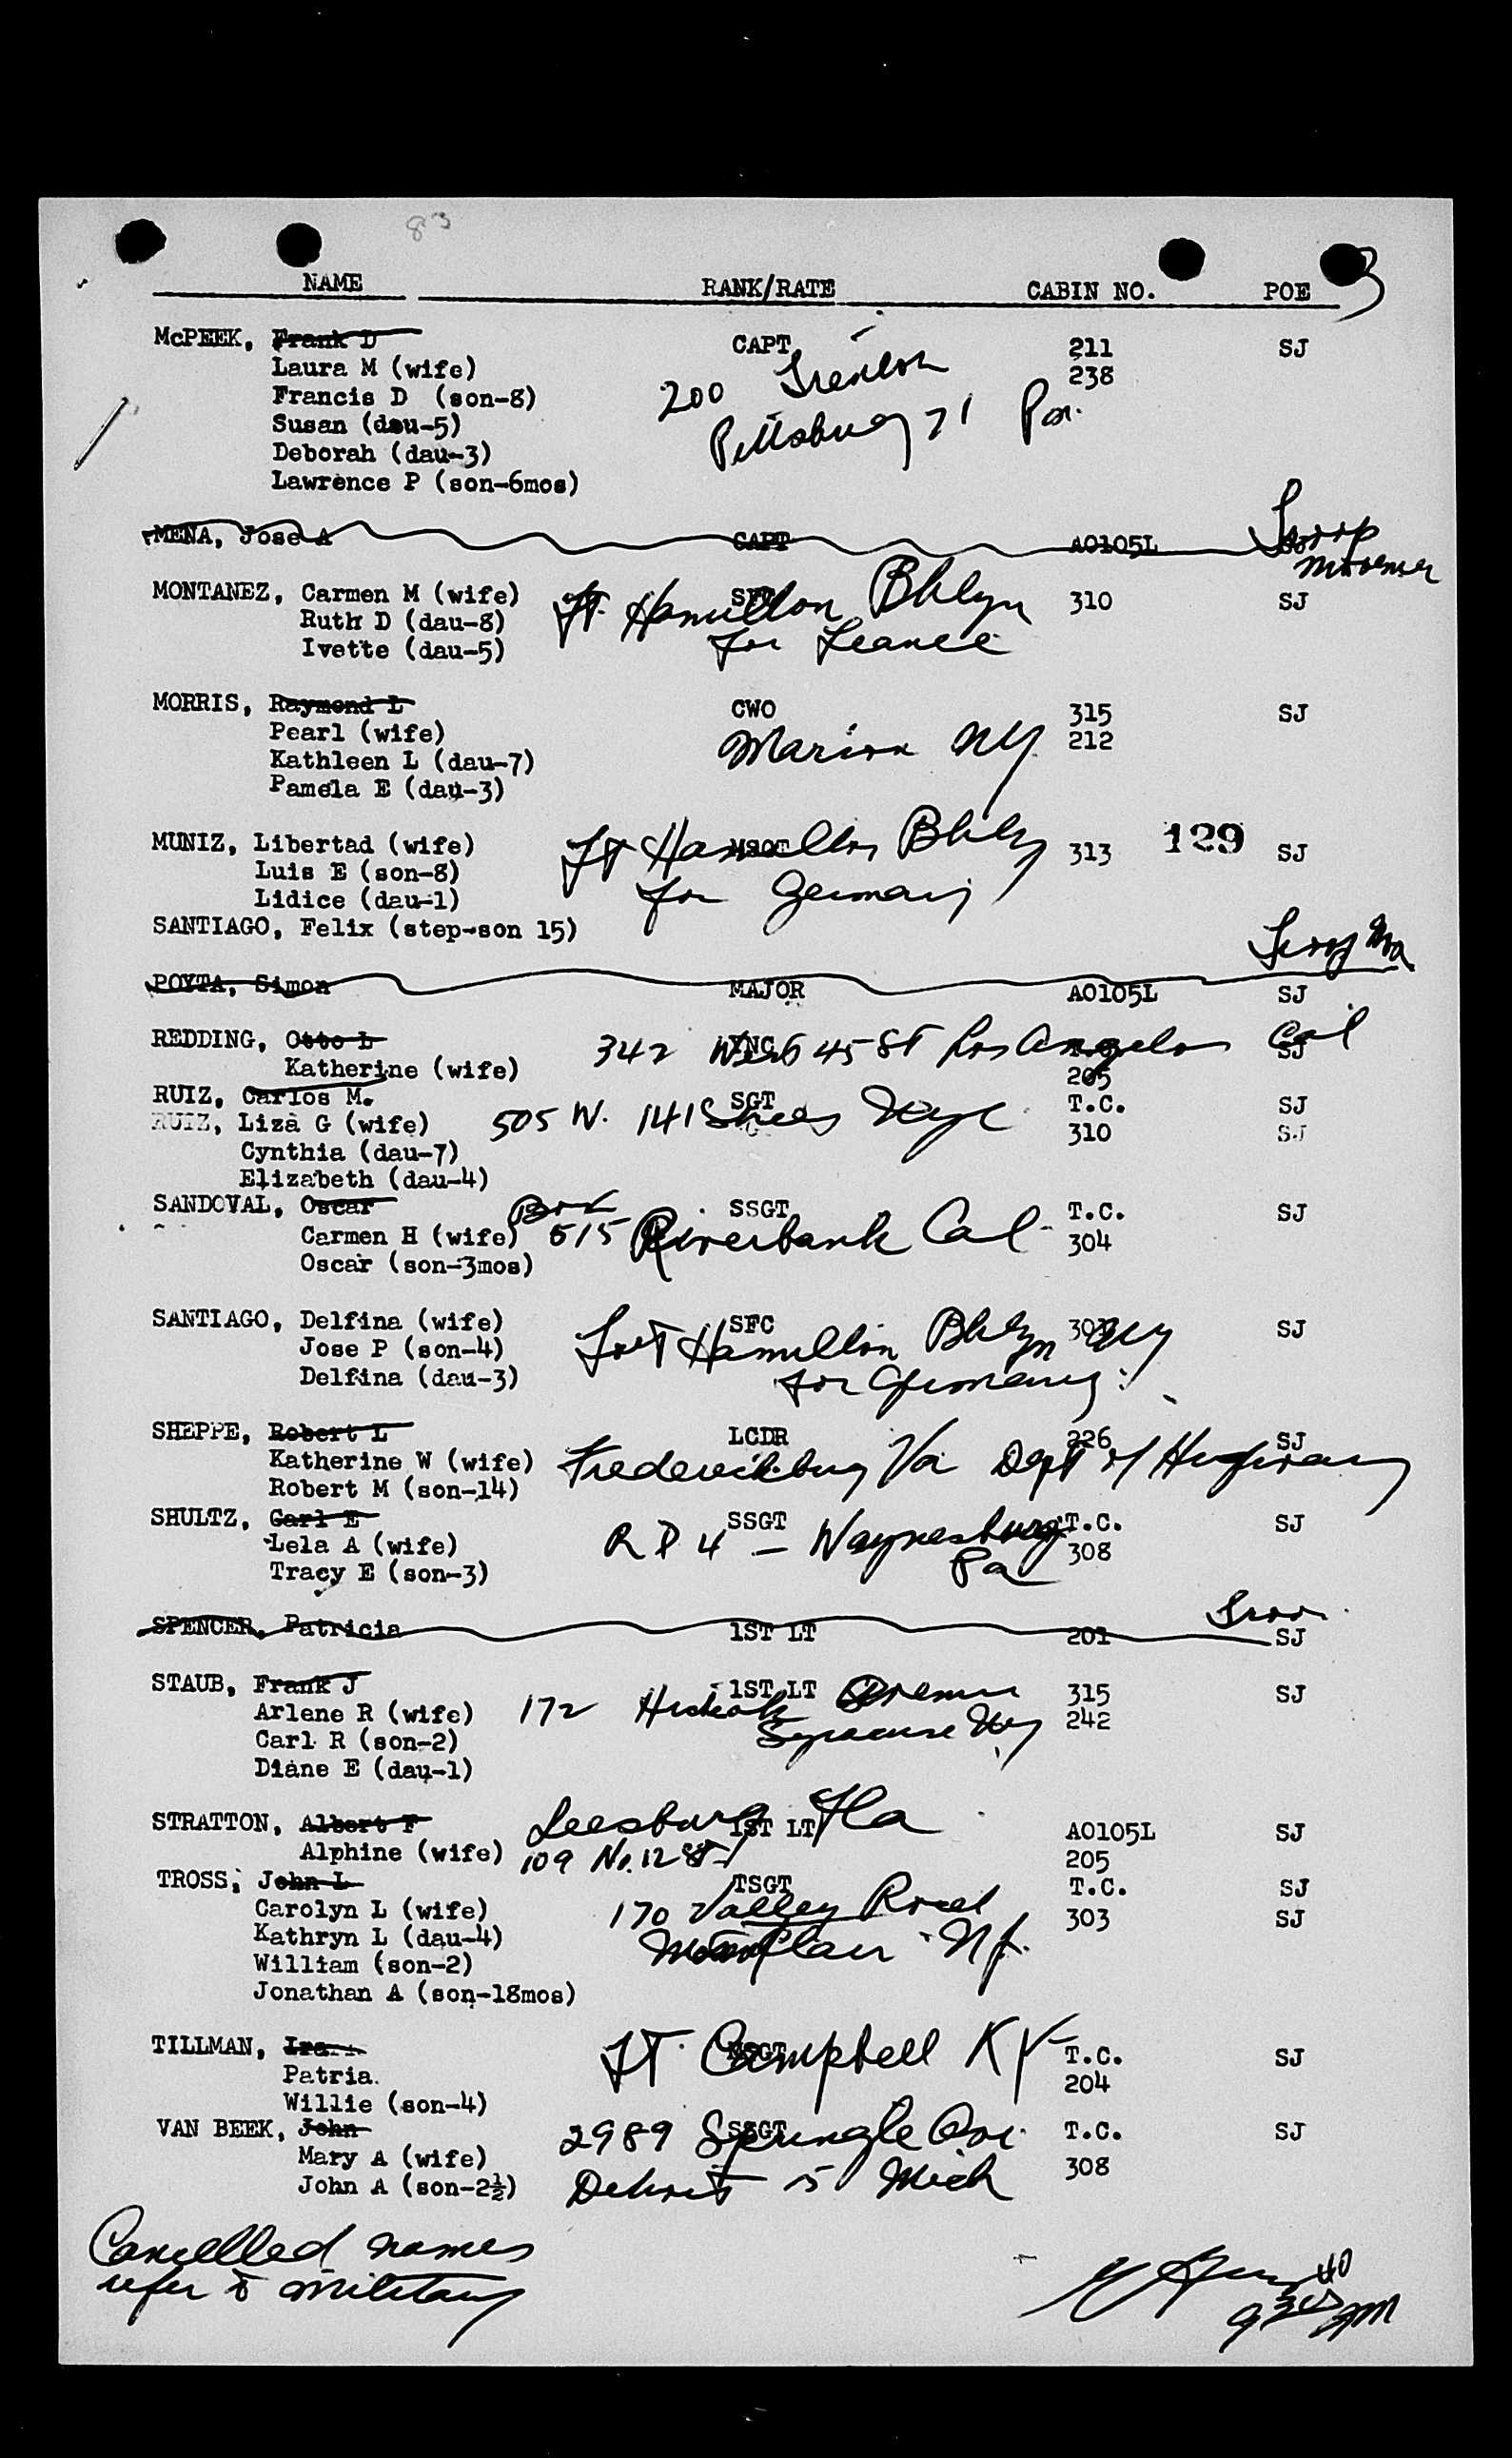 83
3
NAME RANK/RATE CABIN NO. POE
McPEEK, Frank D CAPT 211 SJ
Laura M (wife) 238
Francis D (son-8) 200
Susan (dau-5) Pittsburg 21 Pa.
Deborah (dau-3)
Lawrence P (son-6mos)
MENA, Jose A CAPT A0105L Troop
MONTANEZ, Carmen M (wife) Ft. Hamilton Bklyn 310 SJ
Ruth D (dau-8) for
Ivette (dau-5)
MORRIS, Raymond L CWO 315 SJ
Pearl (wife) Marion NY 212
Kathleen L (dau-7)
Pamela E (dau-3)
MUNIZ, Libertad (wife) MSGT Ft Hamilton Bklyn 313 129 SJ
Luis E (son-8) for Germany
Lidice (dau-1)
SANTIAGO, Felix (step-son 15)
Troop
POYTA, Simon MAJOR A0105L SJ
REDDING, Otto L 342 West 45 St Los Angelos Cal SJ
Katherine (wife) 205
RUIZ, Carlos M. SGT T.C. SJ
RUIZ, Liza G (wife) 505 W. 141 Street NYC 310 SJ
Cynthia (dau-7)
Elizabeth (dau-4)
SANDOVAL, Oscar Box SSGT T.C. SJ
Carmen H (wife) 515 Riverbank Cal 304
Oscar (son-3mos)
SANTIAGO, Delfina (wife) SFC SJ
Jose P (son-4) Fort Hamilton Bklyn NY
Delfina (dau-3) for Germany
SHEPPE, Robert L LCDR 226 SJ
Katherine W (wife) Fredericksburg Va Dept of Highway
Robert M (son-14)
SHULTZ, Carl E SSGT T.C. SJ
Lela A (wife) R D 4 - Waynesburg 308
Tracy E (son-3) Pa
SPENCER, Patricia 1ST LT 201 SJ
STAUB, Frank J 1ST LT 315 SJ
Arlene R (wife) 172 242
Carl R (son-2) Syracuse NY
Diane E (dau-1)
STRATTON, Albert F Leesburg Fla 1ST LT A0105L SJ
Alphine (wife) 109 No. 12 St 205
TROSS, John L TSGT T.C. SJ
Carolyn L (wife) 170 Valley Road 303 SJ
Kathryn L (dau-4) Montclair NJ.
William (son-2)
Jonathan A (son-18mos)
TILLMAN, Ira FT. Campbell KY T.C. SJ
Patria. 204
Willie (son-4)
VAN BEEK, John 2989 Springle Ave. SSGT T.C. SJ
Mary A (wife) 308
John A (son-2½) Detroit 15 Mich
Cancelled names
refer to military
930 PM